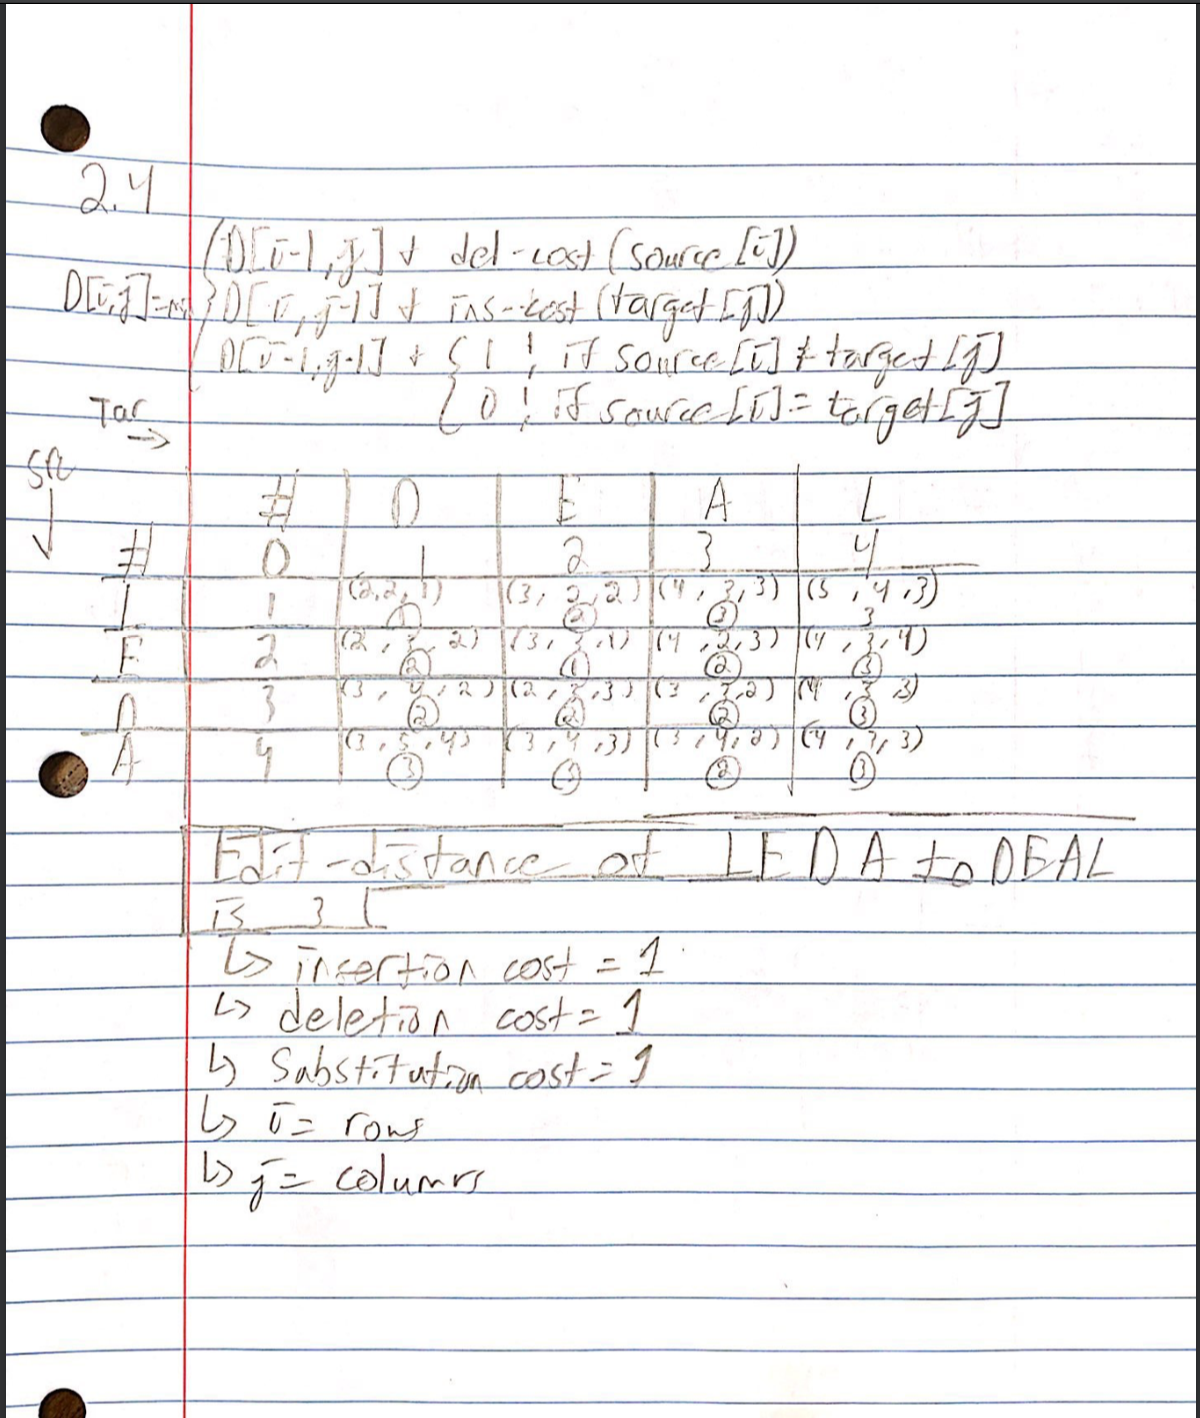 2.4
D[i-1,j] + del-cost (source[i])
D[i,j]=min { D[i,j-1] + ins-cost (target[j])
D[i-1,j-1] + { 1 ; if source[i] ≠ target[j]
0 ; if source[i] = target[j]
Tar →
src ↓
# D E A L
# 0 1 2 3 4
L 1 (2,2,1) (3,2,2) (4,3,3) (5,4,3)
1 2 3 3
E 2 (2,3,2) (3,3,1) (4,2,3) (4,3,4)
2 1 2 3
D 3 (3,4,2) (2,3,3) (3,3,2) (4,3,3)
2 2 2 3
A 4 (3,5,4) (3,4,3) (3,4,2) (4,3,3)
3 3 2 3
Edit-distance of LEDA to DEAL
is 3
↳ insertion cost = 1
↳ deletion cost = 1
↳ Substitution cost = 1
↳ i = rows
↳ j = columns